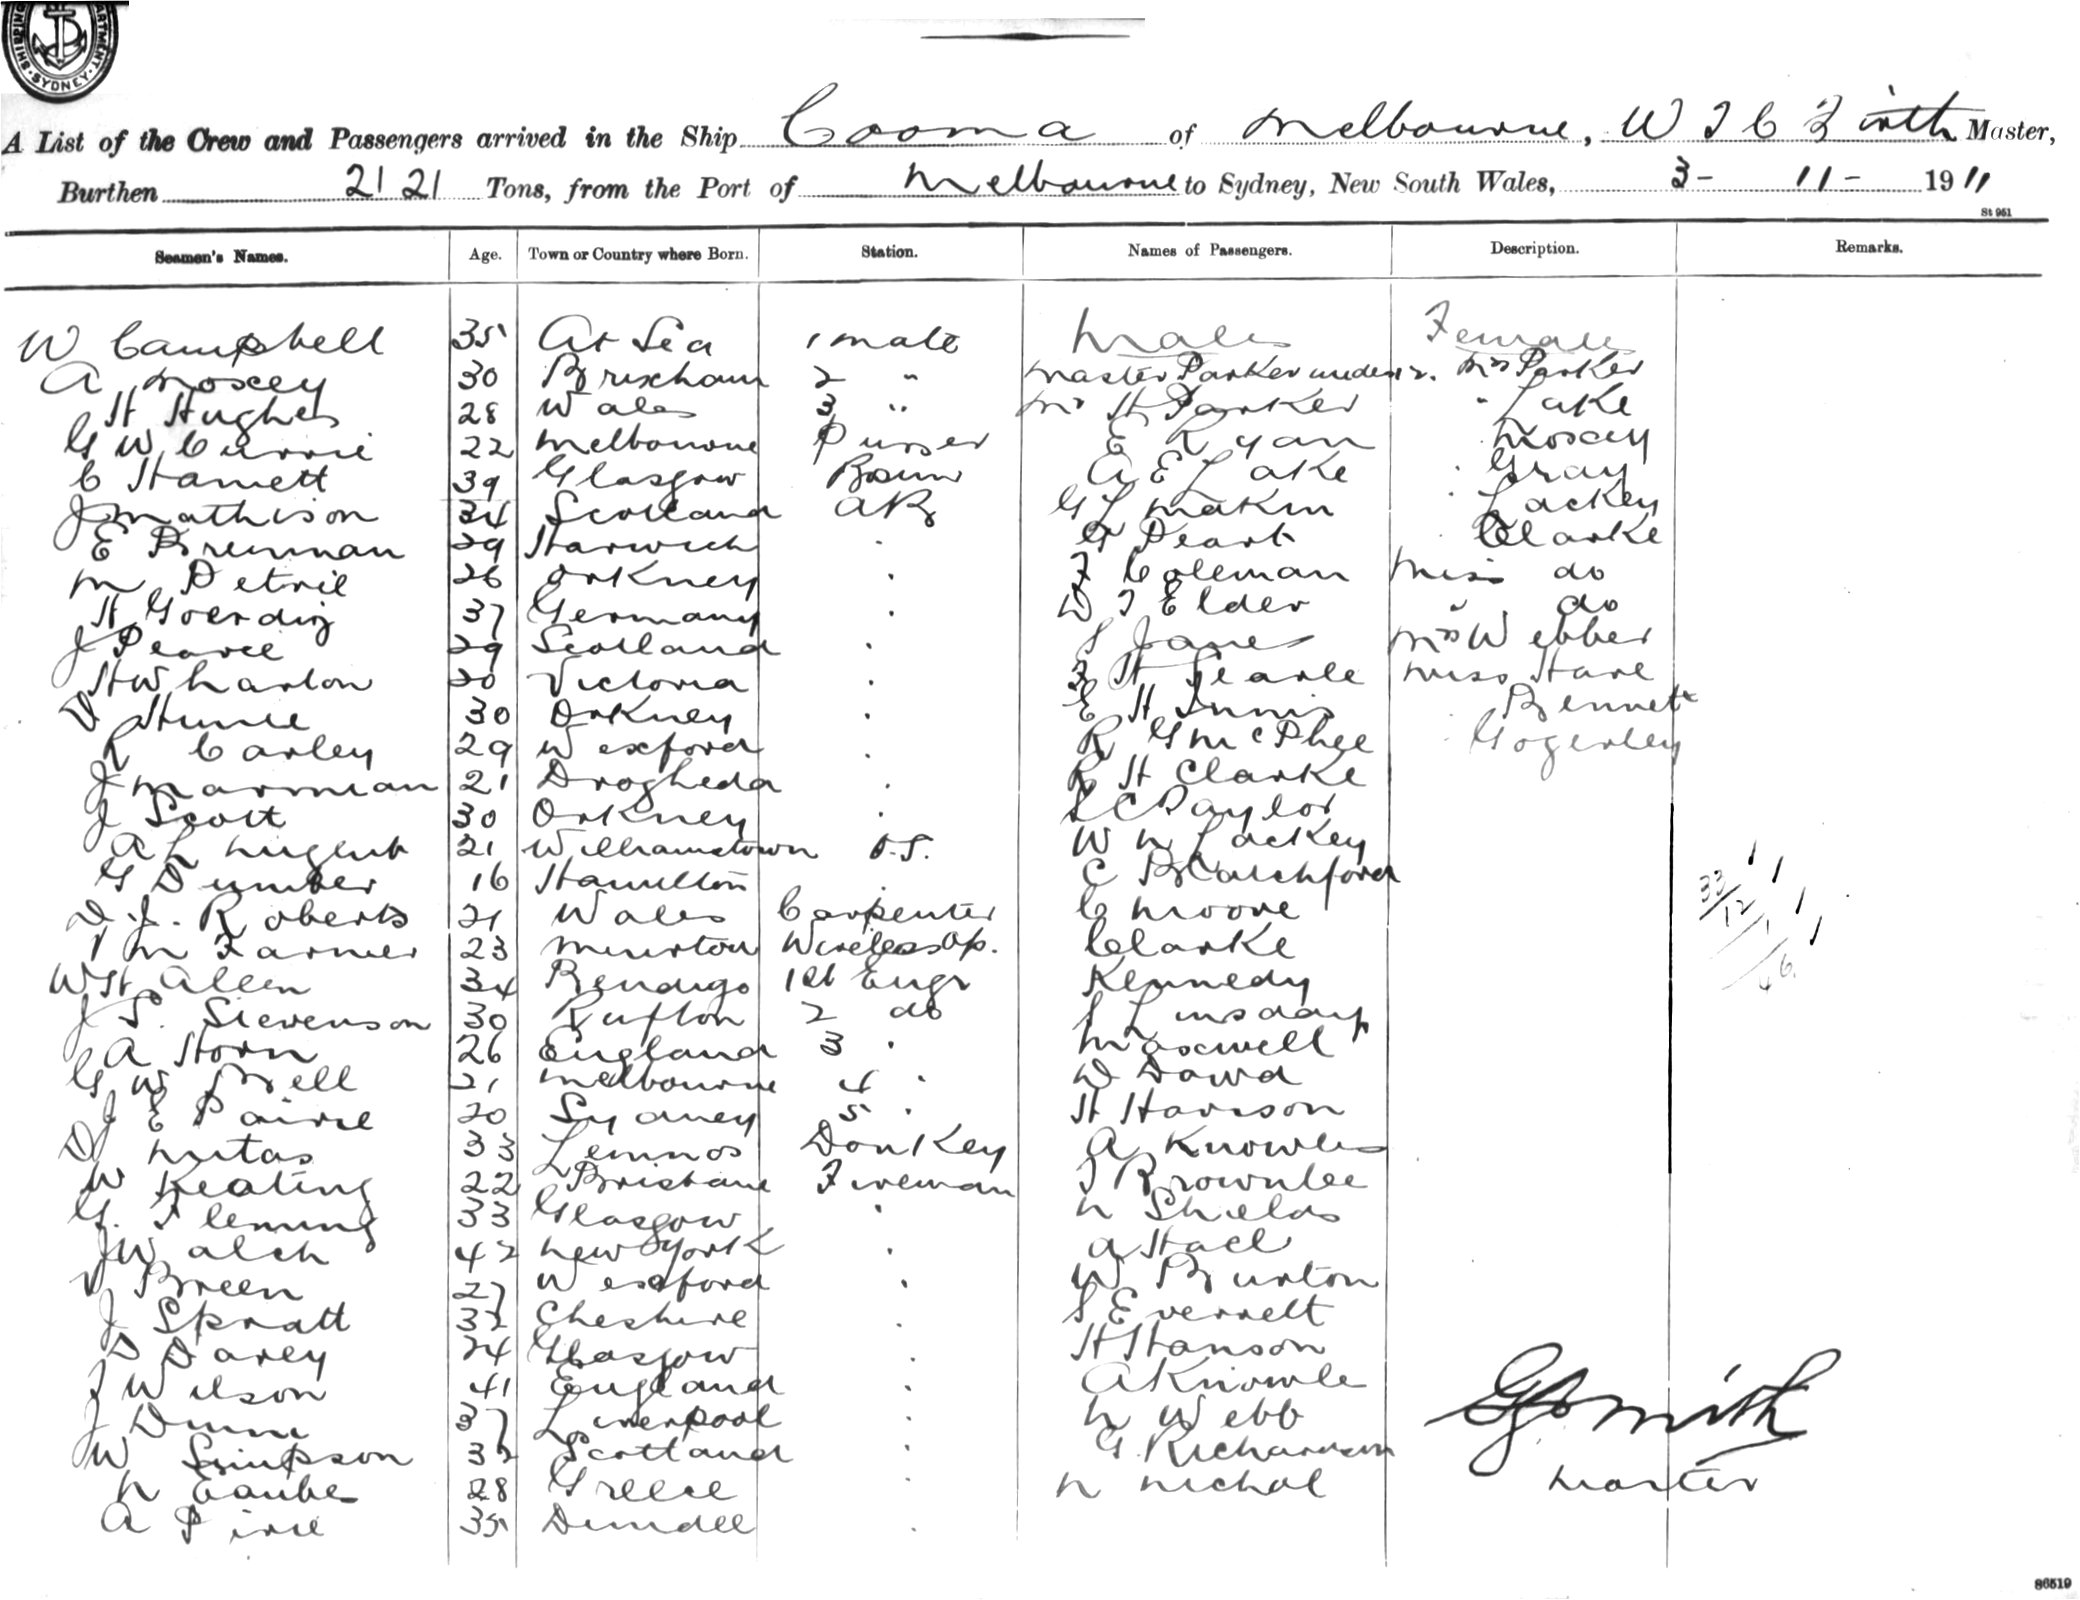 SHIPPING DEPARTMENT. SYDNEY.
A List of the Crew and Passengers arrived in the Ship Cooma of Melbourne, W T C Firth Master,
Burthen 2121 Tons, from the Port of Melbourne to Sydney, New South Wales, 3- 11- 1911
St 951
Seamen's Names. Age. Town or Country where Born. Station. Names of Passengers. Description. Remarks.
W Campbell 35 At Sea 1 mate Males Females
A Moxey 30 Brixham 2 " Master Parker under 12. Mrs Parker
H Hughes 28 Wales 3 " Mr H Parker " Lake
G W Currie 22 Melbourne Purser E Ryan Moxey
C Hamett 39 Glasgow Bosun A E Lake Gray
J Mathison 34 Scotland AB G L Makin Lackey
E Brennan 29 Harwich G Peart Clarke
M Petrie 26 Orkney F Coleman Miss do
H Goerdig 37 Germany W T Elder " do
J Pearce 29 Scotland S Jane Mrs Webber
H Wharton 20 Victoria F H Searle Miss Hare
D Hume 30 Orkney E H Innis Bennett
R Carley 29 Wexford R G McPhee Gogerley
J Marmian 21 Drogheda R H Clarke
J Scott 30 Orkney S C Taylor
A L Nugent 21 Williamstown O.S. W N Lackey
G Dumber 16 Hamilton C Blatchford
D. J. Roberts 21 Wales Carpenter C Moore 33
12
1
46.
T M Farmer 23 Murton Wireless Op. Clarke
W H Allen 34 Bendigo 1st Engr Kennedy
J S. Stevenson 30 Rufton 2 do S Linsday
G A Horn 26 England 3 " Maxwell
G W Bell 21 Melbourne 4 " W David
J E Pairie 20 Sydney 5 " H Harrison
D Mitas 33 Lemnos Donkey A Knowles
W Keating 22 Brisbane Fireman J Brownlee
G. Fleming 33 Glasgow N Shields
J Walch 42 New York A Hall
D Breen 27 Wexford W Burton
J Spratt 32 Cheshire S Everrett
D Darey 24 Glasgow H Hanson
J Wilson 41 England A Knowle
J Dunn 37 Liverpool N Webb
W Simpson 32 Scotland G. Richardson
N 28 Greece N Nichol
A Pirie 35 Dundee
Smith
Master
86519